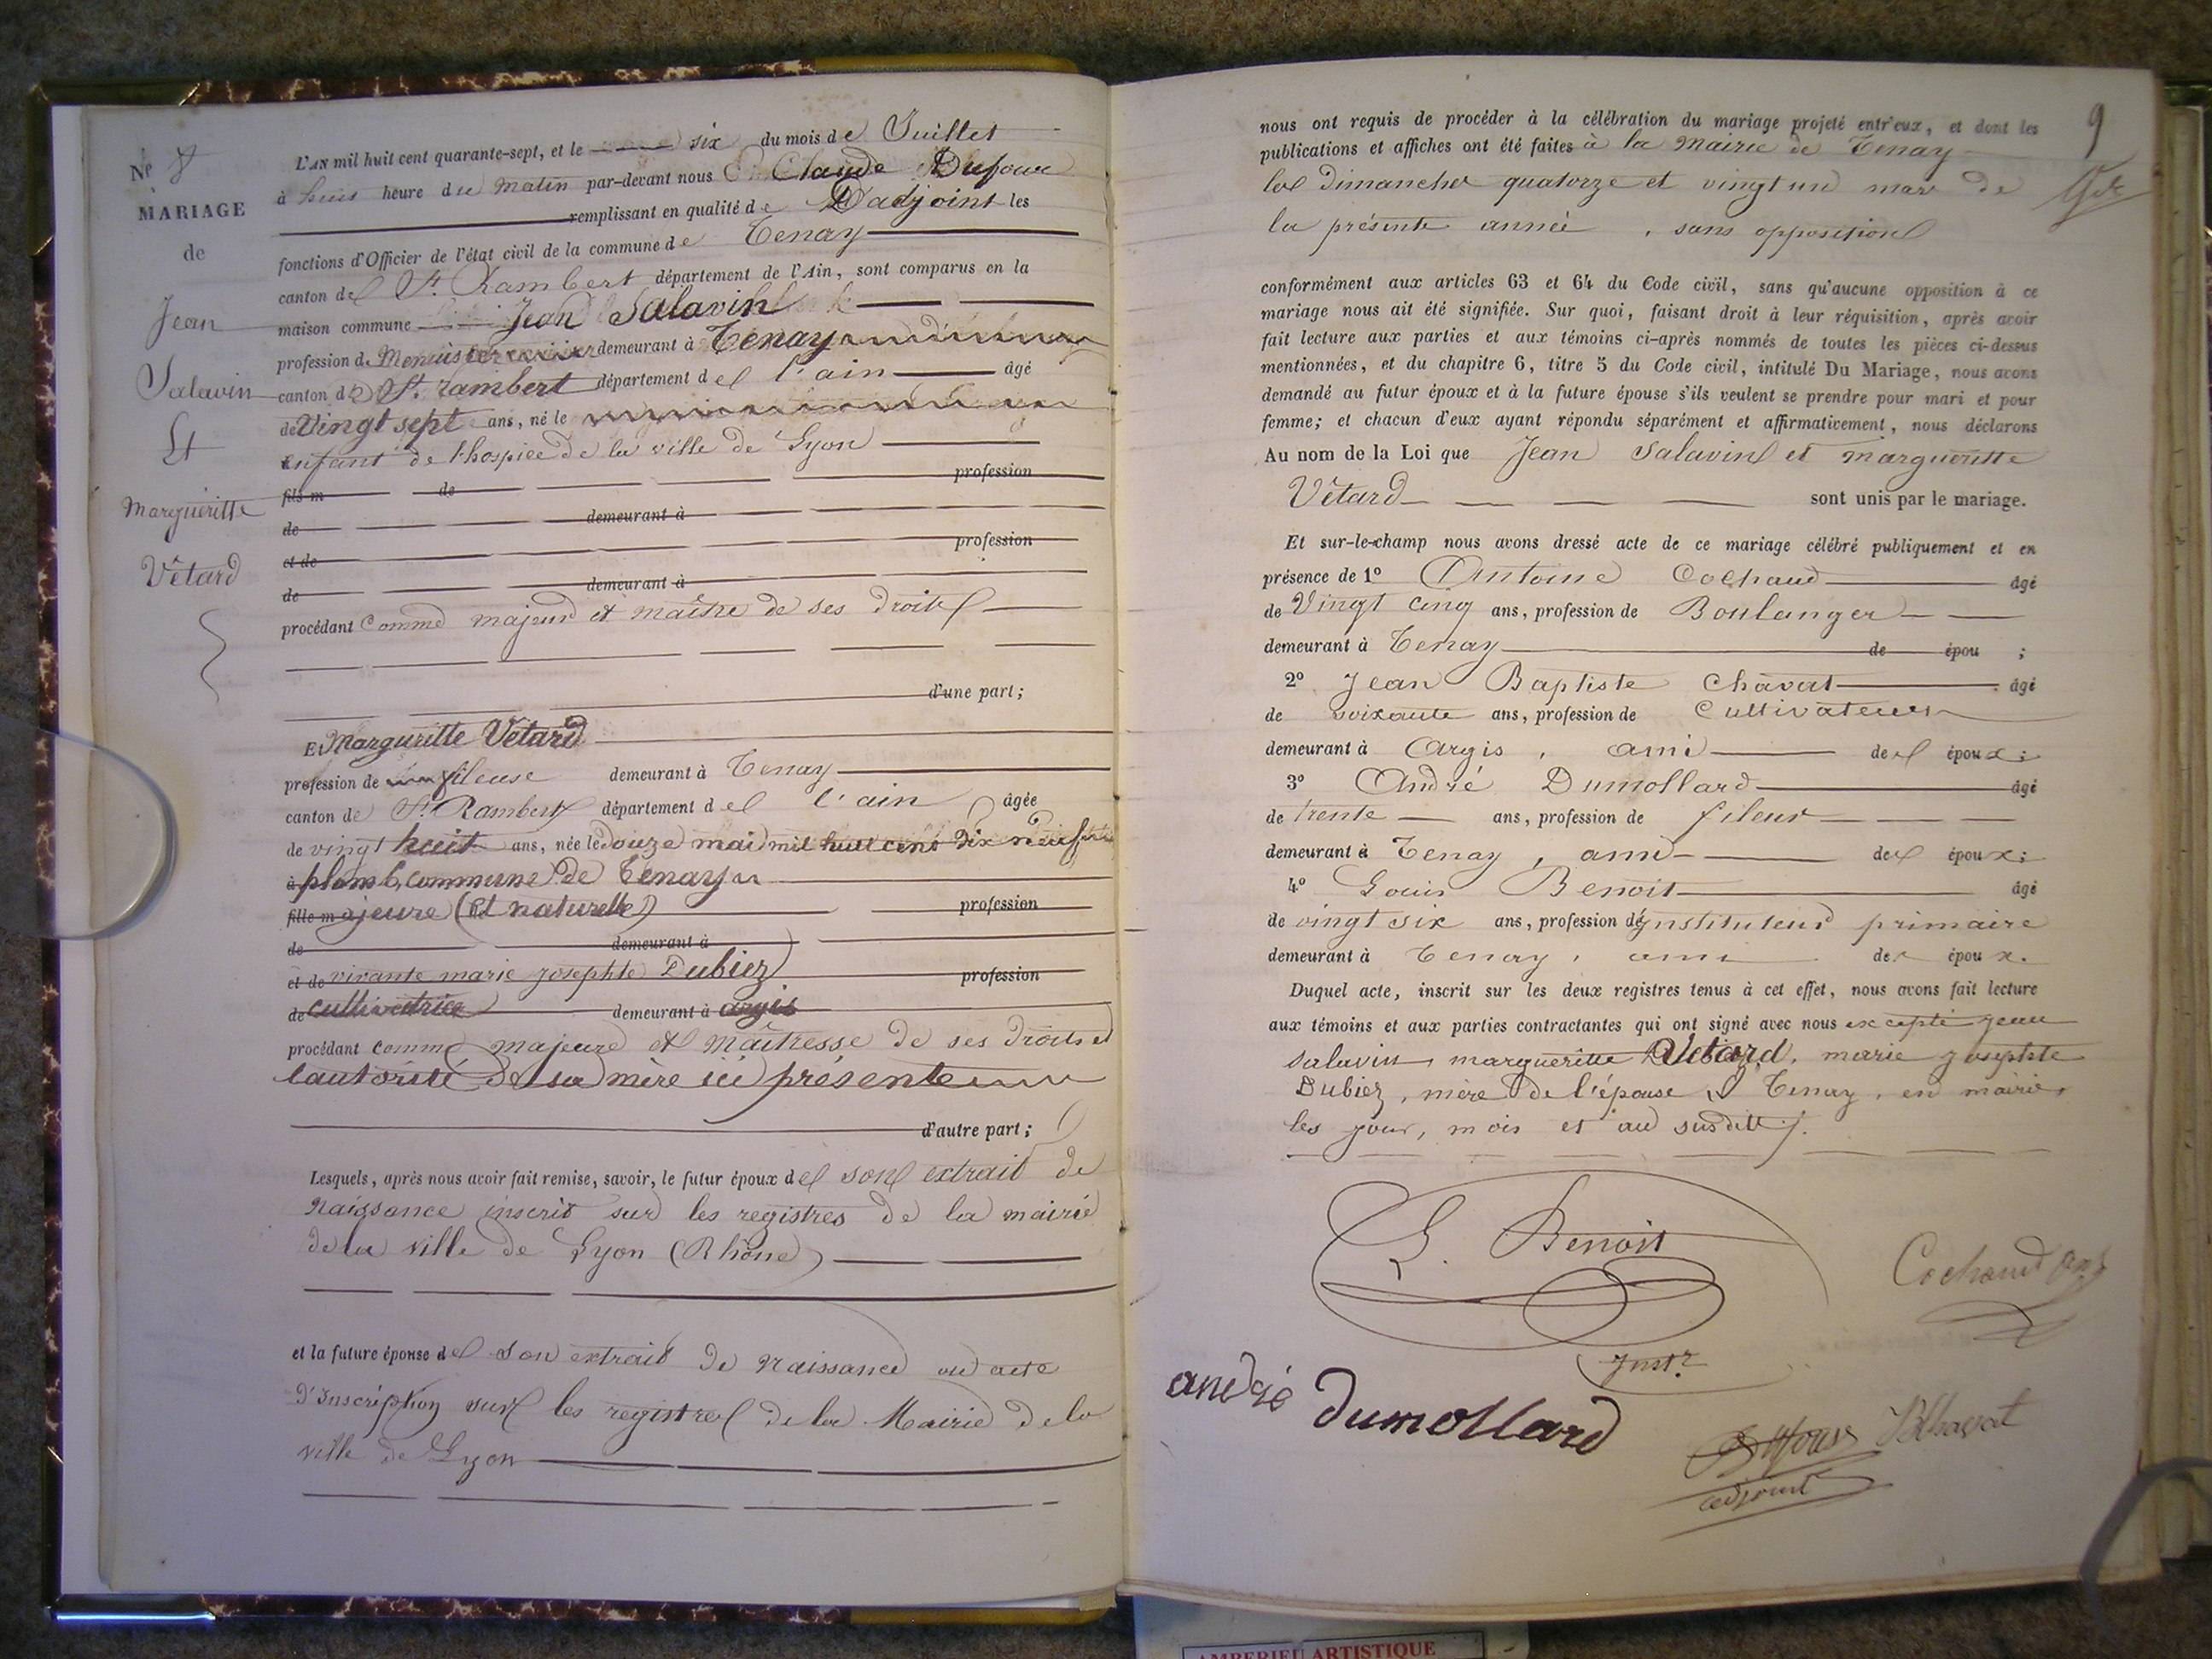 Nº 8
MARIAGE
de
Jean
Salavin
Et
Margueritte
Vétard
L'AN mil huit cent quarante-sept, et le six du mois de Juillet
à huit heure du matin par-devant nous Claude Dufour
remplissant en qualité de D'adjoint les
fonctions d'Officier de l'état civil de la commune de Tenay
canton de St. Rambert département de l'Ain, sont comparus en la
maison commune Jean Salavin
profession de Menuisier demeurant à Tenay
canton de St. rambert département de l'ain âgé
de Vingt sept ans, né le
enfant de l'hospice de la ville de Lyon
fils m de profession
de demeurant à
et de profession
de demeurant à
procédant comme majeur et maître de ses droits
d'une part;
Et Margueritte Vétard
profession de fileuse demeurant à Tenay
canton de St. Rambert département de l'ain âgée
de vingt huit ans, née le Douze mai mil huit cent Dix neuf
à plomb, commune de Tenay
fille majeure (et naturelle) profession
de demeurant à
et de vivante marie josephte Dubiez profession
de cultivatrice demeurant à argis
procédant comme majeure et maîtresse de ses droits et
l'autorité de sa mère ici présente
d'autre part;
Lesquels, après nous avoir fait remise, savoir, le futur époux de son extrait de
naissance inscrit sur les registres de la mairie
de la ville de Lyon (Rhône)
et la future épouse de son extrait de naissance ou acte
d'inscription sur les registres de la Mairie de la
ville de Lyon
9
nous ont requis de procéder à la célébration du mariage projeté entr'eux, et dont les
publications et affiches ont été faites à la mairie de Tenay
les Dimanches quatorze et vingt un mars de
la présente année, sans opposition
conformément aux articles 63 et 64 du Code civil, sans qu'aucune opposition à ce
mariage nous ait été signifiée. Sur quoi, faisant droit à leur réquisition, après avoir
fait lecture aux parties et aux témoins ci-après nommés de toutes les pièces ci-dessus
mentionnées, et du chapitre 6, titre 5 du Code civil, intitulé Du Mariage, nous avons
demandé au futur époux et à la future épouse s'ils veulent se prendre pour mari et pour
femme; et chacun d'eux ayant répondu séparément et affirmativement, nous déclarons
Au nom de la Loi que Jean Salavin et margueritte
Vétard sont unis par le mariage.
Et sur-le-champ nous avons dressé acte de ce mariage célébré publiquement et en
présence de 1º Antoine Cochaud âgé
de Vingt cinq ans, profession de Boulanger
demeurant à Tenay de épou ;
2º Jean Baptiste Chavat âgé
de soixante ans, profession de Cultivateur
demeurant à Argis, ami de époux;
3º André Dumollard âgé
de trente ans, profession de fileur
demeurant à Tenay, ami de époux;
4º Louis Benoit âgé
de vingt six ans, profession d'Instituteur primaire
demeurant à Tenay, ami de époux.
Duquel acte, inscrit sur les deux registres tenus à cet effet, nous avons fait lecture
aux témoins et aux parties contractantes qui ont signé avec nous excepté jean
Salavin, margueritte Vétard, marie josephte
Dubiez, mère de l'épouse, à Tenay, en mairie,
les jour, mois et an susdits.
L. Benoit
Instr.
Cochaud
andré dumollard
Dufour
adjoint
Chavat
AMBERIEU ARTISTIQUE